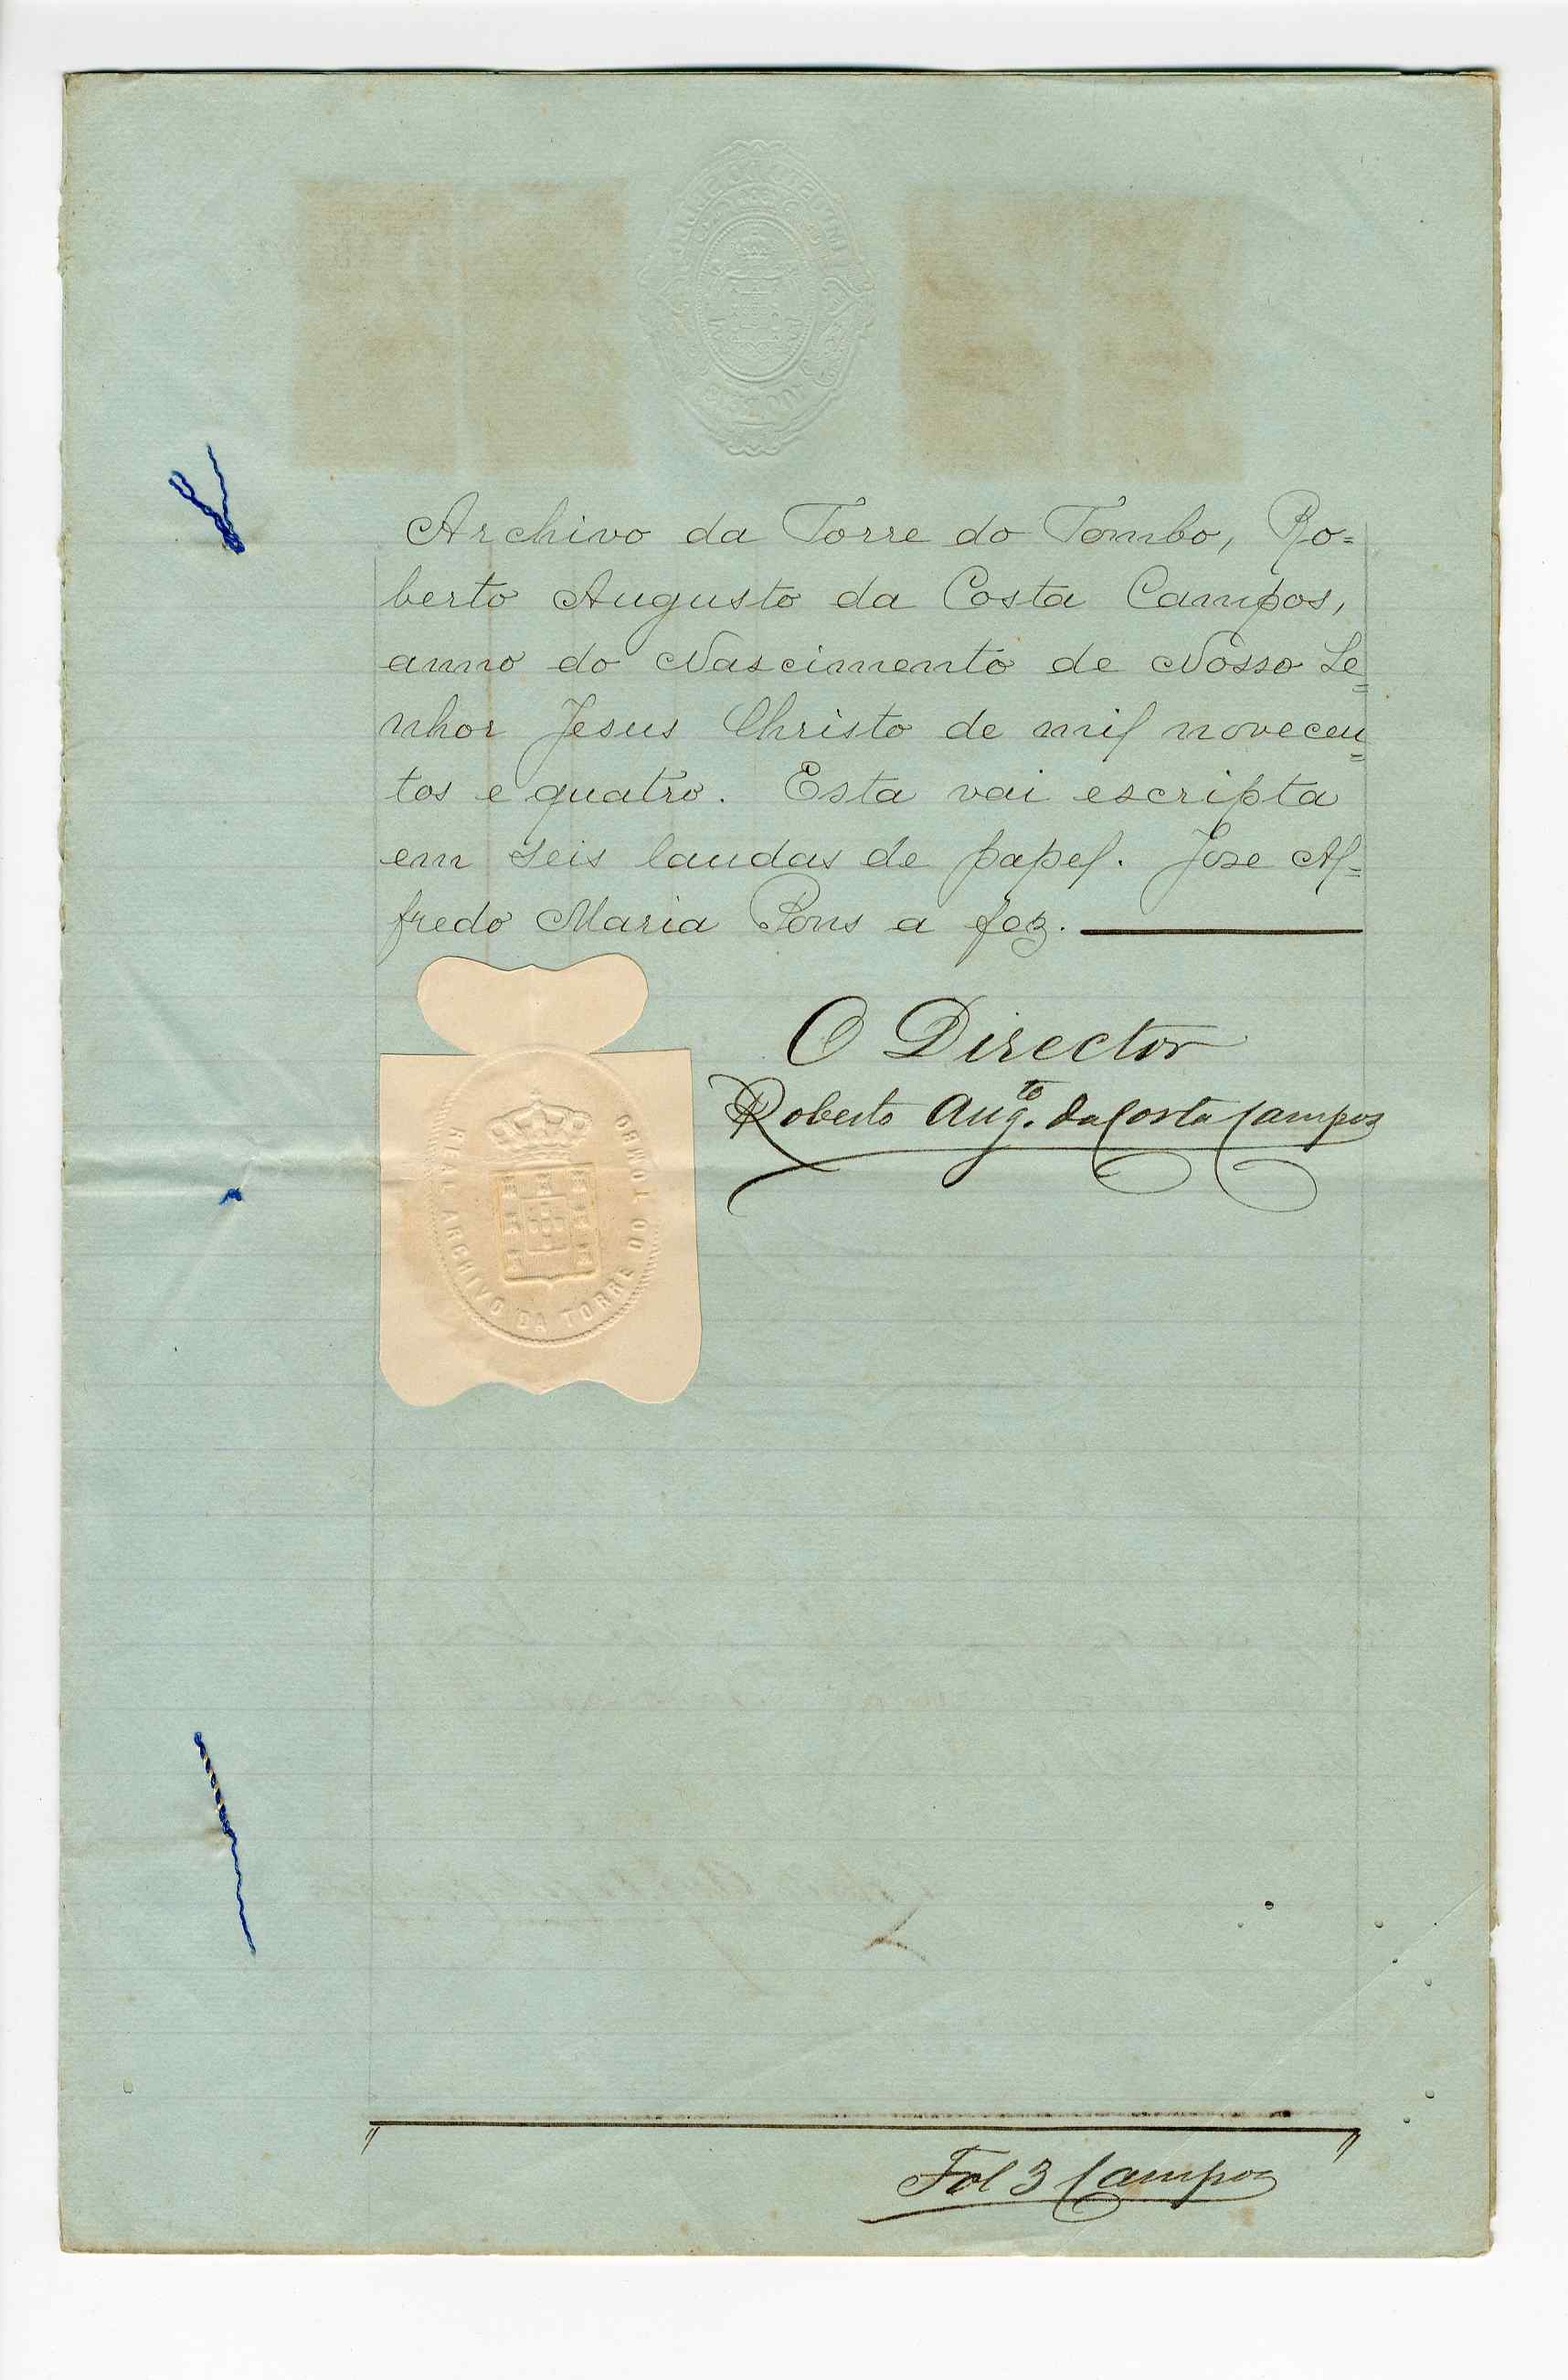 Archivo da Torre do Tombo, Ro=
berto Augusto da Costa Campos,
anno do Nascimento de Nosso Se=
nhor Jesus Christo de mil novecen=
tos e quatro. Esta vai escripta
em seis laudas de papel. Jose Al=
fredo Maria Pons a fez.
O Director
Roberto Aug.to da Costa Campos
REAL ARCHIVO DA TORRE DO TOMBO
Fol 3 Campos